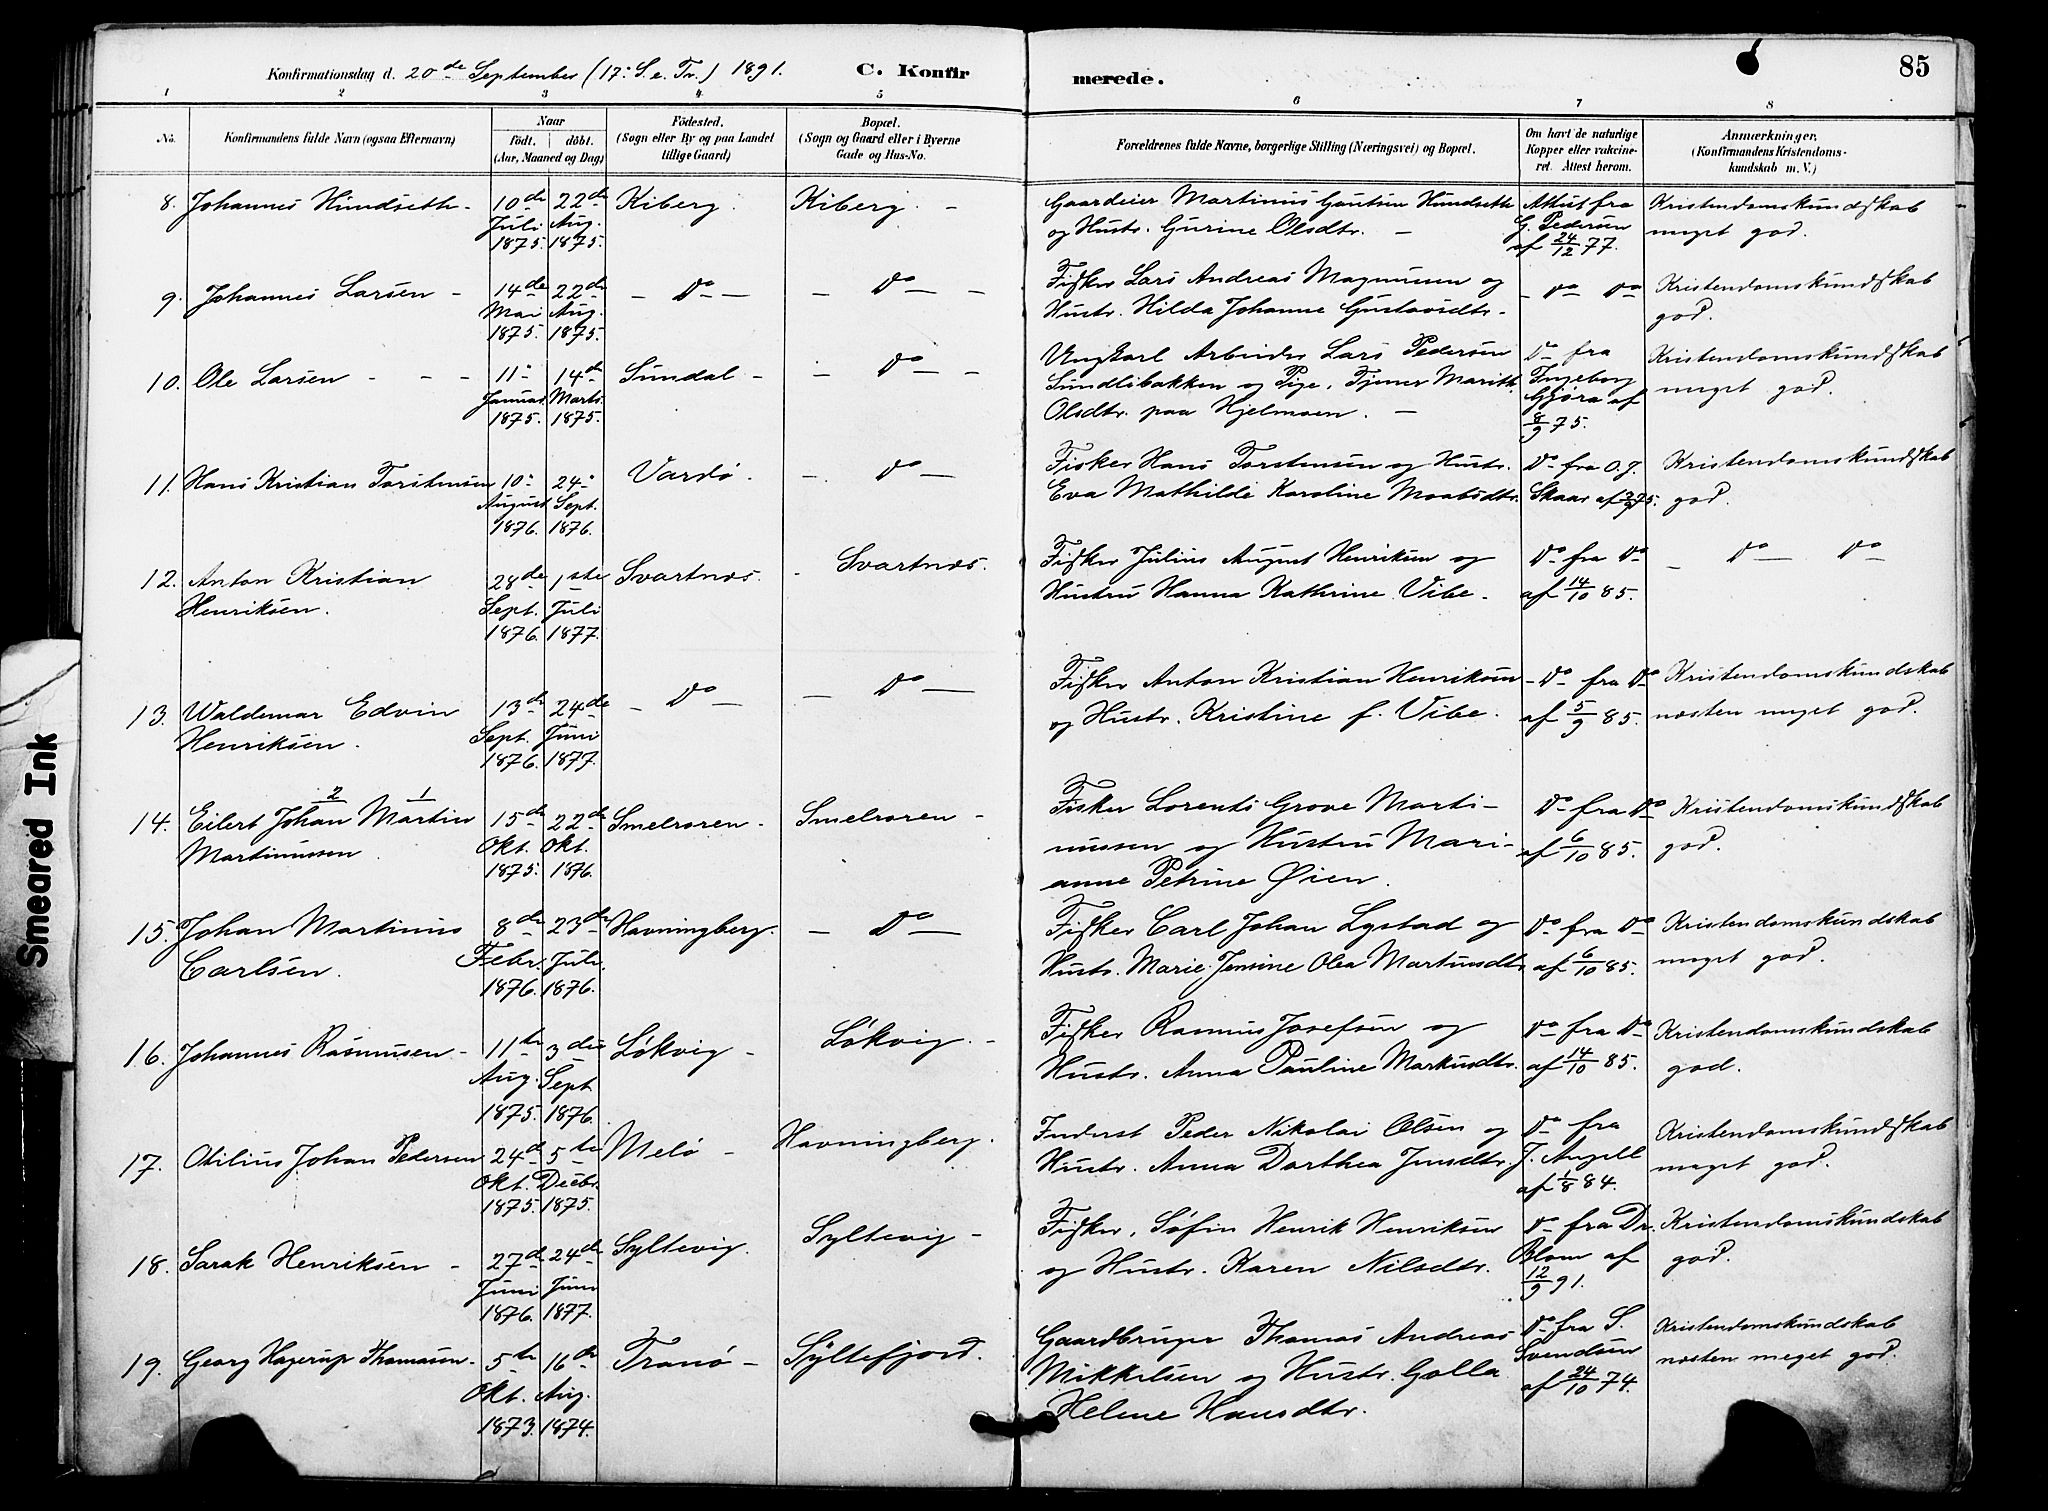 Konfirmationsdag d. 20de September (17. S. e. Tr.) 1891. C. Konfir merede. 85
1 2 3 4 5 6 7 8
No. Konfirmandens fulde Navn (ogsaa Efternavn)
Naar
födt. döbt.
(Aar, Maaned og Dag)
Födested.
(Sogn eller By og paa Landet
tillige Gaard)
Bopæl.
(Sogn og Gaard eller i Byerne
Gade og Hus-No.
Forældrenes fulde Navne, borgerlige Stilling (Næringsvei) og Bopæl.
Om havt de naturlige
Kopper eller vakcine-
ret. Attest herom.
Anmærkninger.
(Konfirmandens Kristendoms-
kundskab m. V.)
8. Johannes Hundseth - 10de Juli 1875. 22de Aug. 1875. Kiberg. Kiberg. -
Gaardeier Martinus Hundseth
og Hustr. Gurine Olsdtr. -
Attest fra
G. Pedersen
af 24/12 77.
Kristendomskundskab
meget god.
9. Johannes Larsen - 14de Mai 1875. 22de Aug. 1875. - Do - - Do -
Fisker Lars Andreas Magnusen og
Hustr. Hilda Johanne Gustavsdtr.
- Do Do
Kristendomskundskab
god.
10. Ole Larsen - - - 11. Januar 1875. 14de Marts 1875. Sundal - - Do -
Ungkarl Arbeider Lars Pedersen
Sundlibakken og Pige, Tjener Marith
Olsdtr. paa Hjelmoen. -
Do fra
Ingeborg
Gjöra af
8/9 75.
Kristendomskundskab
meget god.
11. Hans Kristian Torstensen 10. August 1876. 24. Sept. 1876. Vardø. - Do -
Fisker Hans Torstensen og Hustr.
Eva Mathilde Karoline Moabsdtr.
Do fra O. J.
Skaar af
Kristendomskundskab
god.
12. Anton Kristian
Henriksen. 28de Sept. 1876. 1ste Juli 1877. Svartnæs. - Svartnæs.
Fisker Julius August Henriksen og
Hustru Hanna Kathrine Vibe.
Do fra Do
af 14/10 85.
- Do - Do
13. Waldemar Edvin
Henriksen. 13de Sept. 1876. 24de Juni 1877. - Do - - Do -
Fisker Anton Kristian Henriksen
og Hustr. Kristine f. Vibe.
- Do fra Do
af 5/9 85.
Kristendomskundskab
næsten meget god.
2 1
14. Eilert Johan Martin
Martinussen 15de Okt. 1875. 22de Okt. 1876. Smelroren - Smelroren -
Fisker Lorents Grove Marti-
nussen og Hustru Mari-
anne Petrine Øien.
Do fra Do
af 6/10 85.
Kristendomskundskab
god.
15. Johan Martinus
Carlsen. 8de Febr. 1876. 23de Juli. 1876. Havningberg. - Do -
Fisker Carl Johan Lystad og
Hustr. Marie Jensine Olea
Do fra Do
af 6/10 85.
Kristendomskundskab
meget god.
16. Johannes Rasmusen - 11te Aug. 1875. 3die Sept. 1876. Løkvig - Løkvig. -
Fisker Rasmus Josefsen og
Hustr. Anna Pauline Markusdtr.
Do fra Do
af 14/10 85.
Kristendomskundskab
god.
17. Otilius Johan Pedersen 24de Okt. 1875. 5te Decbr. 1875. Melö - Havningberg.
Inderst Peder Nikolai Olsen og
Hustr. Anna Dorthea Jensdtr.
Do fra
J. Angell
af 1/8 84.
Kristendomskundskab
meget god.
18. Sarak Henriksen - 27de Juni 1876. 24de Juni 1877. Syltevig. Syltevig -
Fisker, Söfin Henrik Henriksen
og Hustr. Karen Nilsdtr.
Do fra Dr.
Blom af
12/9 91.
Kristendomskundskab
god.
19. Georg Hagerup Thomasen - 5te Okt. 1873. 16de Aug. 1874. Tranø - Syltefjord.
Gaardbruger Thomas Andreas
Mikkelsen og Hustr. Golla
Helene Hansdtr.
Do fra S.
Svendsen
af 24/10 74.
Kristendomskundskab
næsten meget god.
Smeared Ink